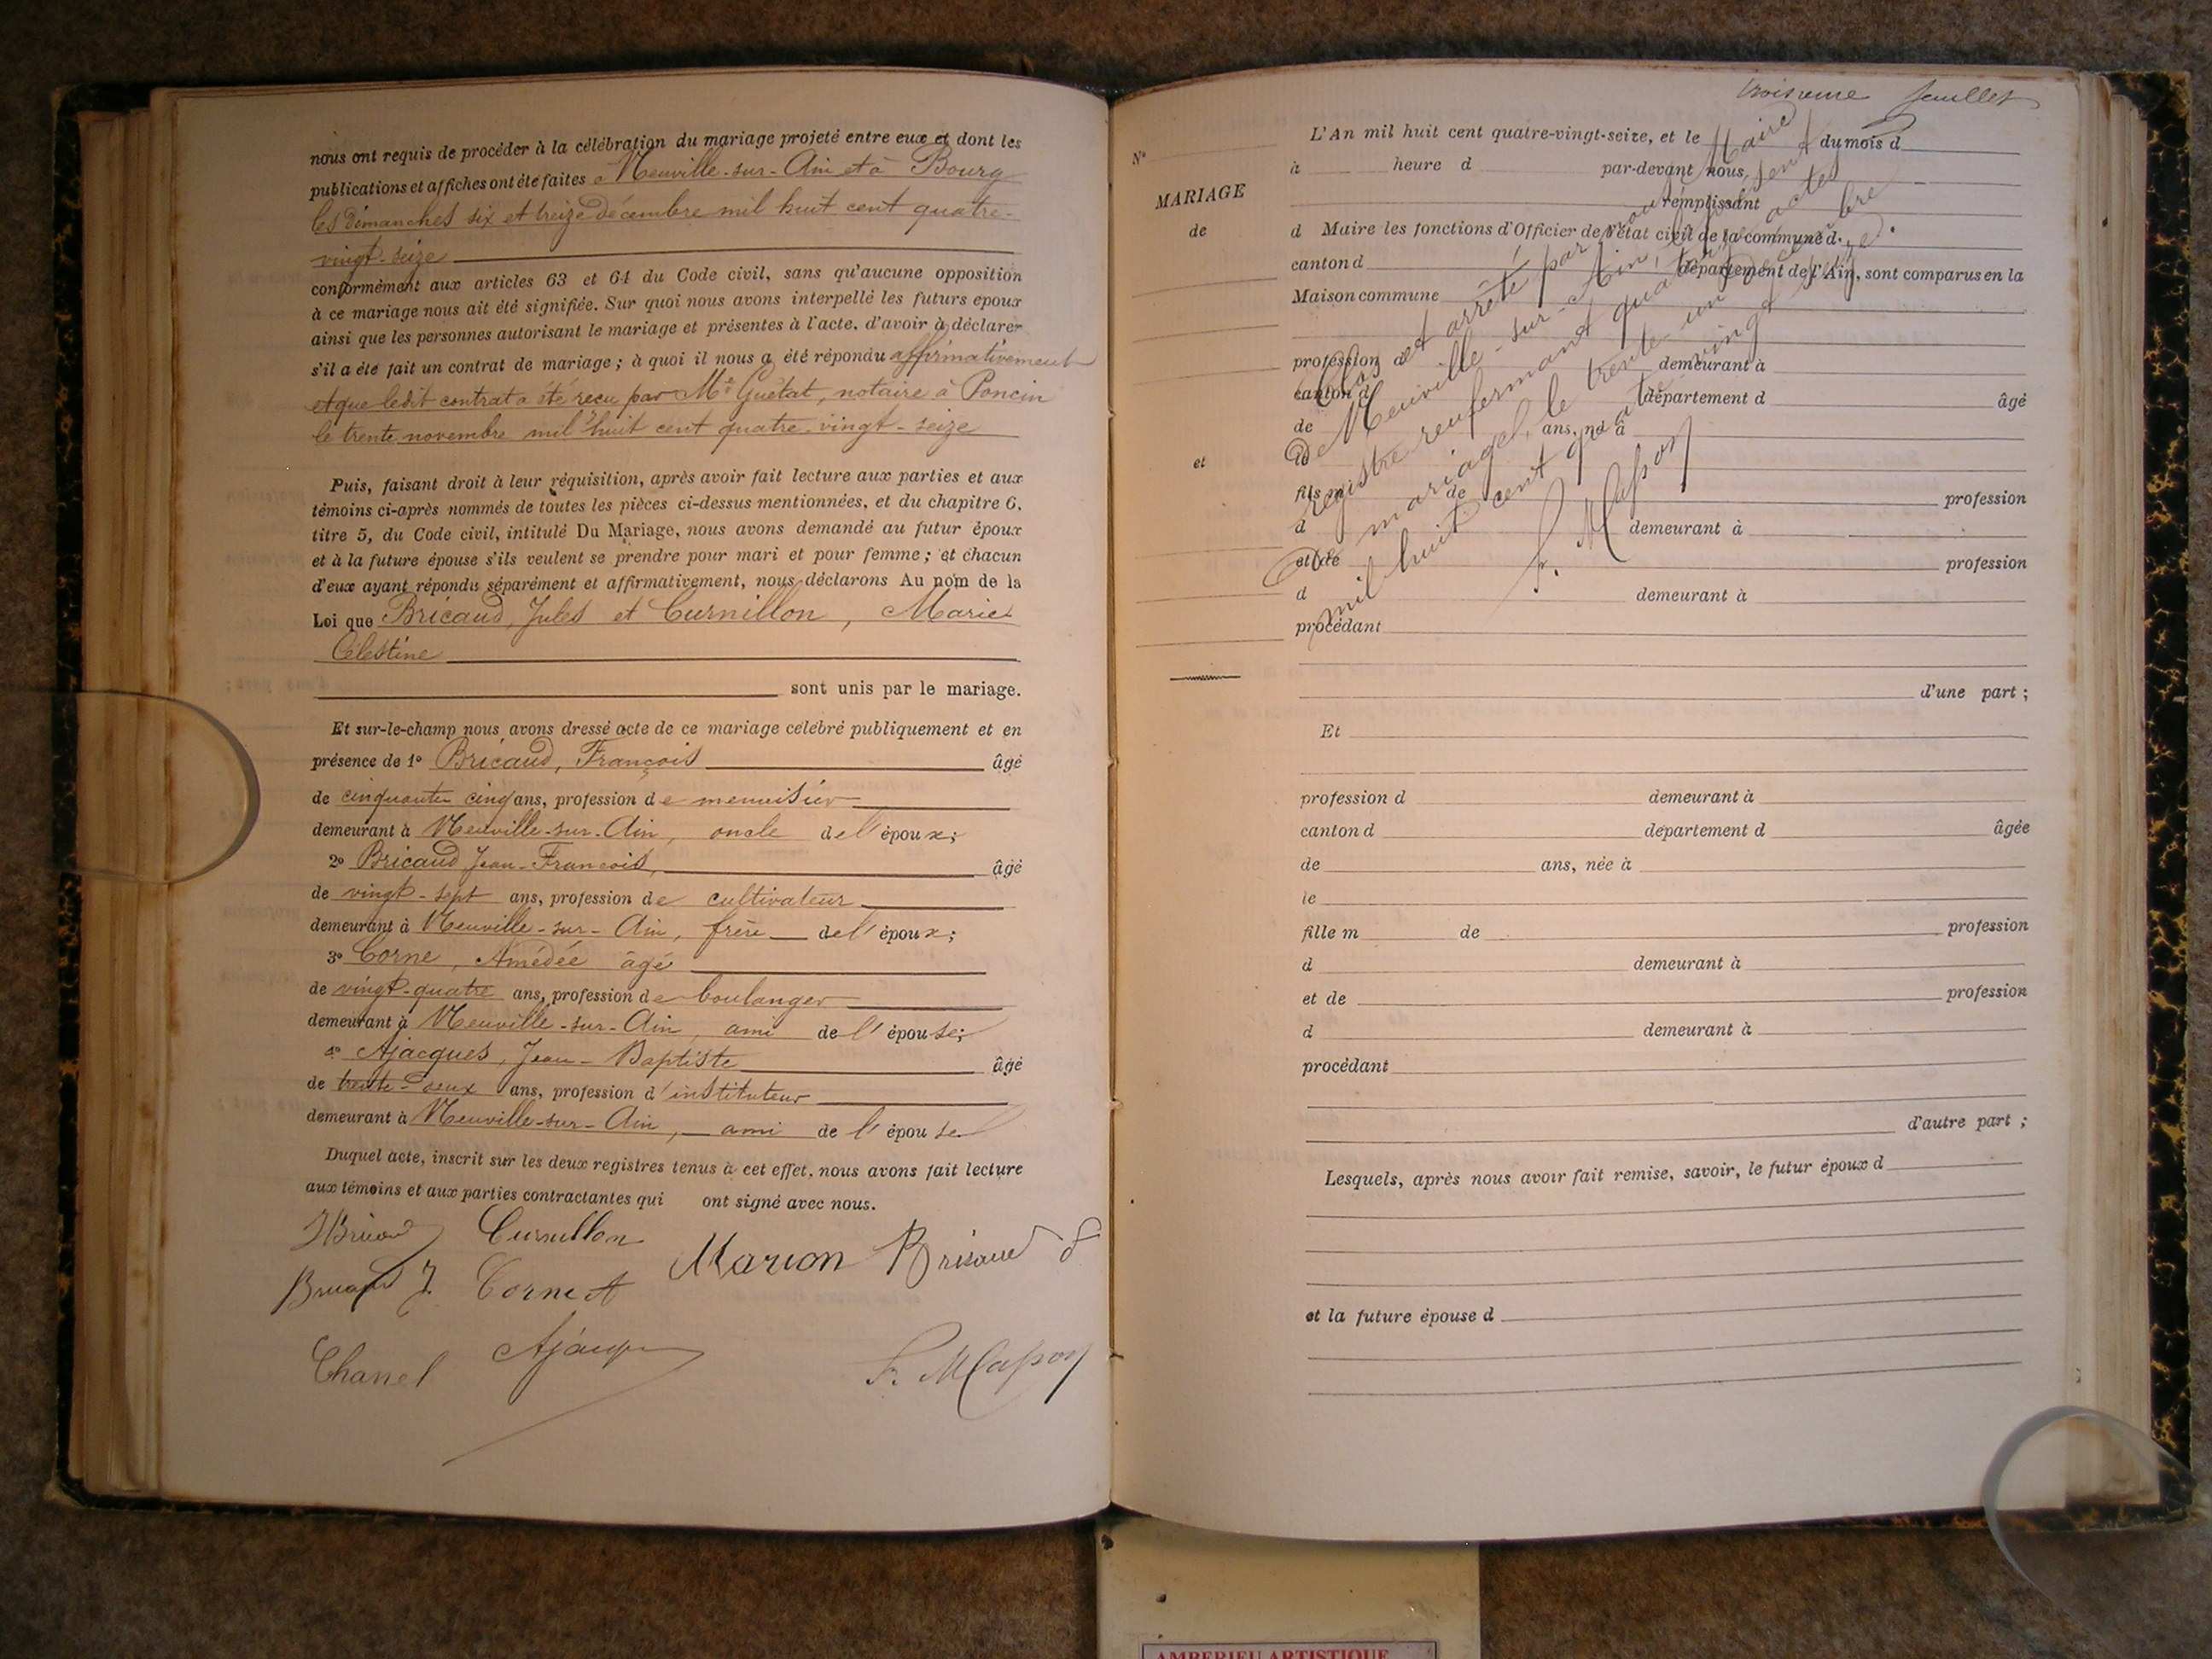 nous ont requis de procéder à la célébration du mariage projeté entre eux et dont les
publications et affiches ont été faites à Neuville-sur-Ain et à Bourg
les dimanches six et treize décembre mil huit cent quatre-
vingt-seize
conformément aux articles 63 et 64 du Code civil, sans qu'aucune opposition
à ce mariage nous ait été signifiée. Sur quoi nous avons interpellé les futurs époux
ainsi que les personnes autorisant le mariage et présentes à l'acte, d'avoir à déclarer
s'il a été fait un contrat de mariage ; à quoi il nous a été répondu affirmativement
et que ledit contrat a été reçu par Me Guétat, notaire à Poncin
le trente novembre mil huit cent quatre-vingt-seize
Puis, faisant droit à leur réquisition, après avoir fait lecture aux parties et aux
témoins ci-après nommés de toutes les pièces ci-dessus mentionnées, et du chapitre 6,
titre 5, du Code civil, intitulé Du Mariage, nous avons demandé au futur époux
et à la future épouse s'ils veulent se prendre pour mari et pour femme ; et chacun
d'eux ayant répondu séparément et affirmativement, nous déclarons Au nom de la
Loi que Bricaud, Jules et Curnillon, Marie
Célestine
sont unis par le mariage.
Et sur-le-champ nous avons dressé acte de ce mariage célébré publiquement et en
présence de 1° Bricaud, François âgé
de cinquante cinq ans, profession de menuisier
demeurant à Neuville-sur-Ain, oncle de l'époux;
2° Bricaud Jean-François, âgé
de vingt-sept ans, profession de cultivateur
demeurant à Neuville-sur-Ain, frère de l'époux;
3° Corne, Amédée âgé
de vingt-quatre ans, profession de boulanger
demeurant à Neuville-sur-Ain, ami de l'épouse;
4° Ajacques, Jean-Baptiste âgé
de trente-deux ans, profession d'instituteur
demeurant à Neuville-sur-Ain, ami de l'épouse
Duquel acte, inscrit sur les deux registres tenus à cet effet, nous avons fait lecture
aux témoins et aux parties contractantes qui ont signé avec nous.
Curnillon
Marion Bricaud
Bricaud J. Corne A
Chanel
troisième feuillet
N°
MARIAGE
de
et
L'An mil huit cent quatre-vingt-seize, et le du mois d
à heure d par-devant nous,
remplissant
d Maire les fonctions d'Officier de l'état civil de la commune d
canton d département de l'Ain, sont comparus en la
Maison commune
profession d demeurant à
canton d département d âgé
de ans, né à
le
fils m de profession
d demeurant à
et de profession
d demeurant à
procédant
d'une part ;
Clos et arrêté par nous, Maire
de Neuville-sur-Ain, le présent
registre renfermant quatorze actes
de mariages, le trente un décembre
mil huit cent quatre vingt seize.
Et
profession d demeurant à
canton d département d âgée
de ans, née à
le
fille m de profession
d demeurant à
et de profession
d demeurant à
procédant
d'autre part ;
Lesquels, après nous avoir fait remise, savoir, le futur époux d
et la future épouse d
AMBERIEU ARTISTIQUE